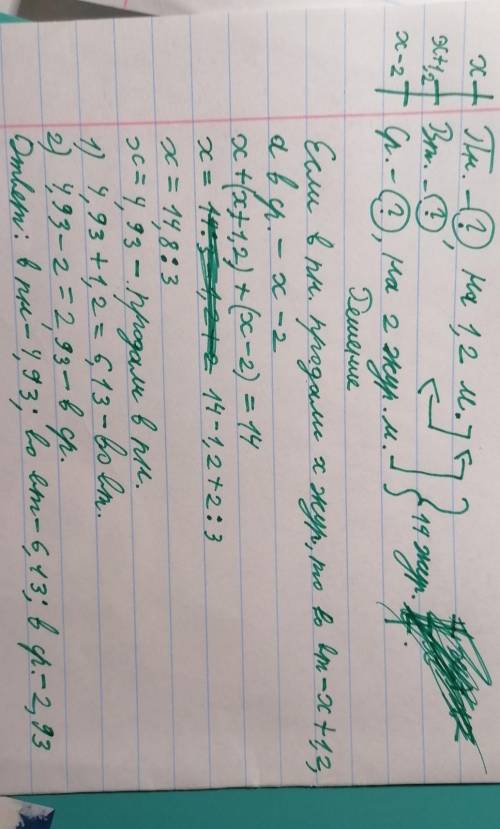 x Пн. - ?, на 1,2 м.
x+1,2 Вт. - ?, } 14 жур.
x-2 Ср. - ?, на 2 жур. м.
Решение
Если в пн. продали x жур, то во вт - x + 1,2,
а в ср. - x - 2
x + (x + 1,2) + (x - 2) = 14
x = 14 - 1,2 + 2 : 3
x = 14,8 : 3
x = 4,93 - продали в пн.
1) 4,93 + 1,2 = 6,13 - во вт.
2) 4,93 - 2 = 2,93 - в ср.
Ответ: в пн - 4,93; во вт - 6,13; в ср. - 2,93